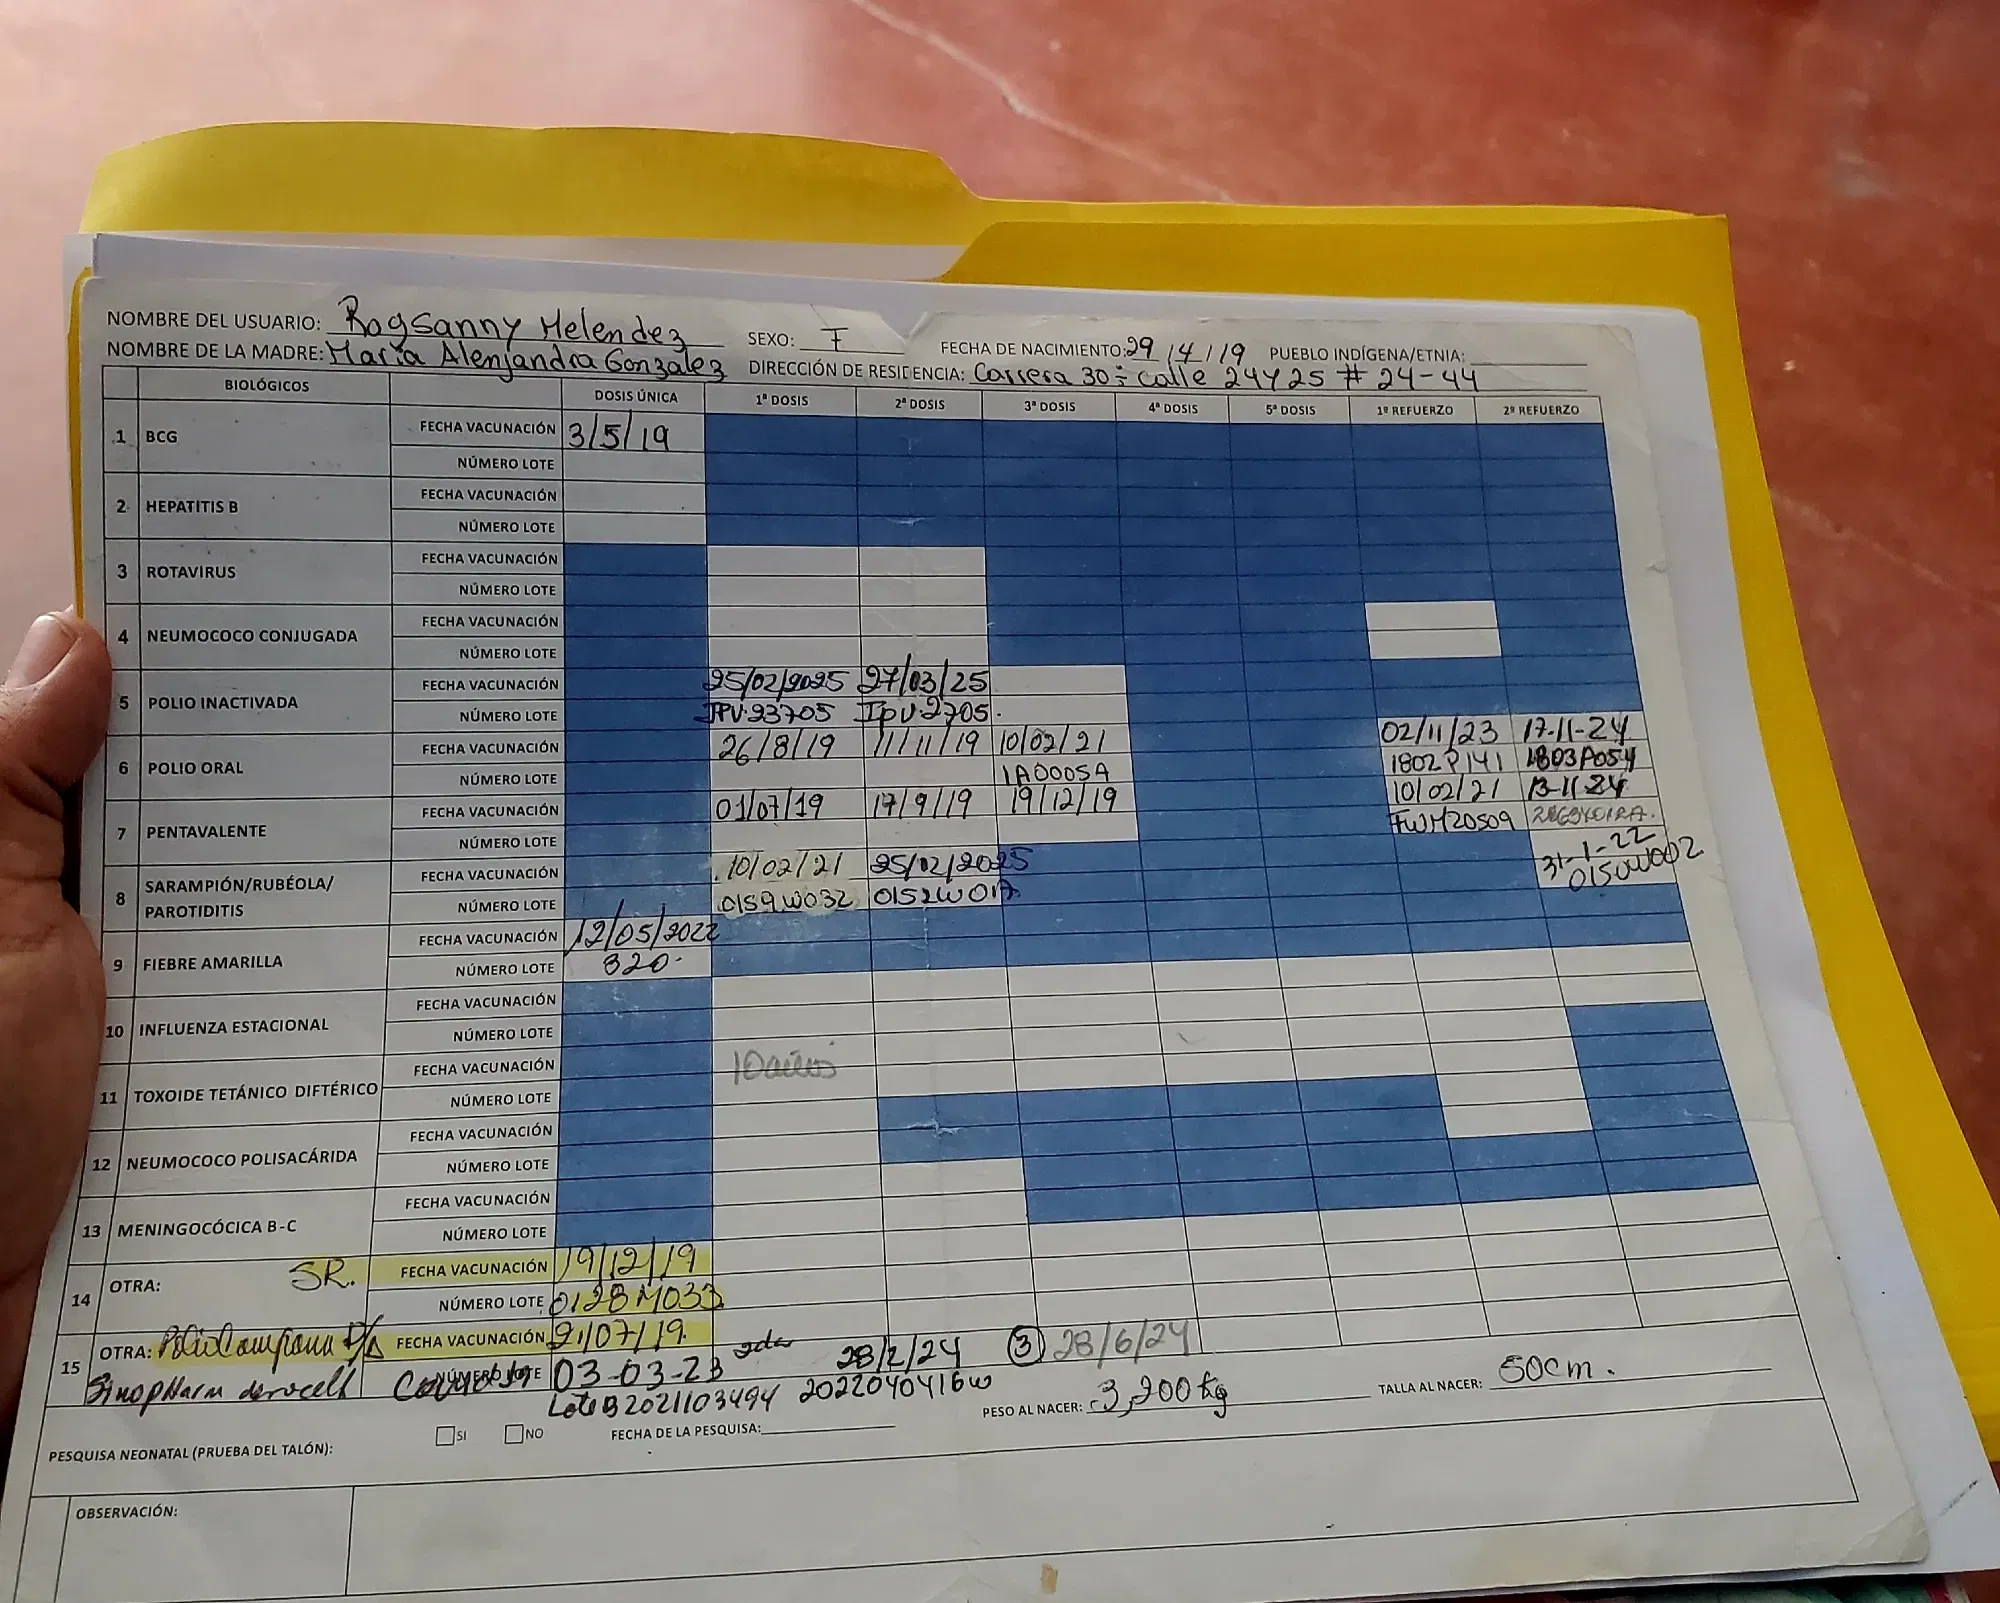 NOMBRE DEL USUARIO: Rogsanny Melendez SEXO: F FECHA DE NACIMIENTO: 29/4/19 PUEBLO INDÍGENA/ETNIA:
NOMBRE DE LA MADRE: María Alenjandra Gonzalez DIRECCIÓN DE RESIDENCIA: Carrera 30 ÷ calle 24 y 25 # 24-44
BIOLÓGICOS DOSIS ÚNICA 1ª DOSIS 2ª DOSIS 3ª DOSIS 4ª DOSIS 5ª DOSIS 1º REFUERZO 2º REFUERZO
1 BCG FECHA VACUNACIÓN 3/5/19
NÚMERO LOTE
2 HEPATITIS B FECHA VACUNACIÓN
NÚMERO LOTE
3 ROTAVIRUS FECHA VACUNACIÓN
NÚMERO LOTE
4 NEUMOCOCO CONJUGADA FECHA VACUNACIÓN
NÚMERO LOTE
5 POLIO INACTIVADA FECHA VACUNACIÓN 25/02/2025 27/03/25
NÚMERO LOTE IPV.23705 Ipv.2705.
6 POLIO ORAL FECHA VACUNACIÓN 26/8/19 11/11/19 10/02/21 02/11/23 17-11-24
NÚMERO LOTE 1A0005A 1802P141 1803P054
7 PENTAVALENTE FECHA VACUNACIÓN 01/07/19 17/9/19 19/12/19 10/02/21 13-11-24
NÚMERO LOTE FWM20509
8 SARAMPIÓN/RUBÉOLA/ PAROTIDITIS FECHA VACUNACIÓN 10/02/21 25/02/2025 31-1-22
NÚMERO LOTE 0159W032 0152W017 0150W002
9 FIEBRE AMARILLA FECHA VACUNACIÓN 12/05/2022
NÚMERO LOTE 320.
10 INFLUENZA ESTACIONAL FECHA VACUNACIÓN
NÚMERO LOTE
11 TOXOIDE TETÁNICO DIFTÉRICO FECHA VACUNACIÓN 10 años
NÚMERO LOTE
12 NEUMOCOCO POLISACÁRIDA FECHA VACUNACIÓN
NÚMERO LOTE
13 MENINGOCÓCICA B-C FECHA VACUNACIÓN
NÚMERO LOTE
14 OTRA: SR. FECHA VACUNACIÓN 19/12/19
NÚMERO LOTE 0128M033
15 OTRA: FECHA VACUNACIÓN 21/07/19. 2da 28/2/24 3 28/6/24
Sinopharm NÚMERO LOTE 03-03-23
Lote B2021103494 2022040416w PESO AL NACER: 3,200 kg TALLA AL NACER: 50cm.
PESQUISA NEONATAL (PRUEBA DEL TALÓN): SI NO FECHA DE LA PESQUISA:
OBSERVACIÓN: